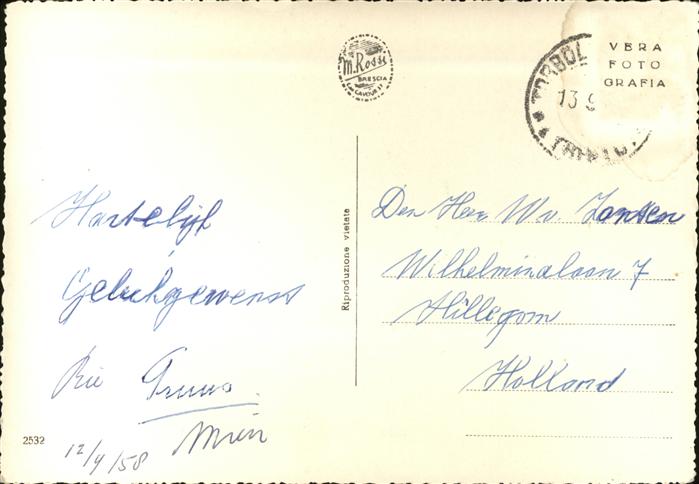 M. Rossi
BRESCIA
TORBOL
13 9
TRENTO
VERA
FOTO
GRAFIA
Hartelijk
Gelukgewenst
Rie Truus
Mien
12/9/58
2532
Riproduzione vietata
Den Heer W v. Jansen
Wilhelminalaan 7
Hillegom
Holland